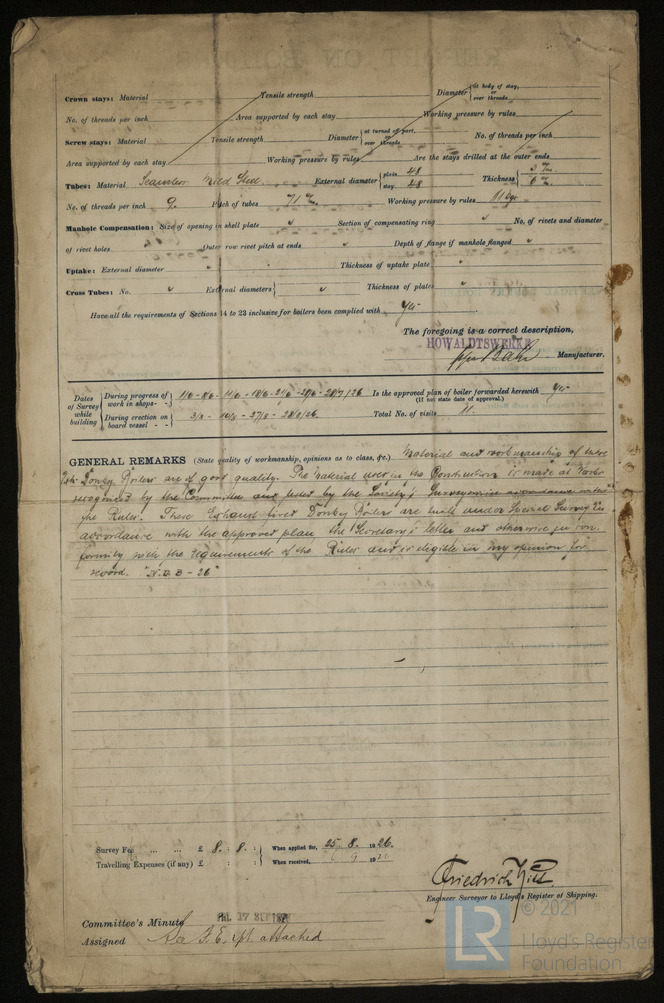 Crown stays: Material Tensile strength Diameter { at body of stay, or over threads
No. of threads per inch Area supported by each stay Working pressure by rules
Screw stays: Material Tensile strength Diameter { at turned off part, or over threads No. of threads per inch
Area supported by each stay Working pressure by rules Are the stays drilled at the outer ends
Tubes: Material Seamless Mild Steel. External diameter { plain 48 stay 48 Thickness { 3 6
No. of threads per inch 9. Pitch of tubes 71 Working pressure by rules 11
Manhole Compensation: Size of opening in shell plate Section of compensating ring No. of rivets and diameter
of rivet holes Outer row rivet pitch at ends Depth of flange if manhole flanged
Uptake: External diameter Thickness of uptake plate
Cross Tubes: No. External diameters { Thickness of plates
Have all the requirements of Sections 14 to 23 inclusive for boilers been complied with yes
The foregoing is a correct description,
HOWALDTSWERKE
Manufacturer.
Dates of Survey while building { During progress of work in shops - - } Is the approved plan of boiler forwarded herewith yes
(If not state date of approval.)
{ During erection on board vessel - - - } Total No. of visits 11.
GENERAL REMARKS (State quality of workmanship, opinions as to class, &c.) Material and workmanship of these
Donkey Boilers are of good quality. The Material used in the Construction is made at Works
recognized by the Committee and tested by the Society's Surveyors in accordance with
the Rules. These Exhaust fired Donkey Boilers are built under Special Survey in
accordance with the approved plan, the Secretary's letter and otherwise in con-
formity with the requirements of the Rules and is eligible in my opinion for
record. "N.D.B - 26"
Survey Fee ... ... £ 8 : 8 : } When applied for, 25. 8. 1926.
Travelling Expenses (if any) £ : : } When received, 19
Friedrich
Engineer Surveyor to Lloyd's Register of Shipping.
Committee's Minute FRI. 17 SEP 1926
Assigned See F.E. rpt. attached
LR
© 2021
Lloyd's Register
Foundation